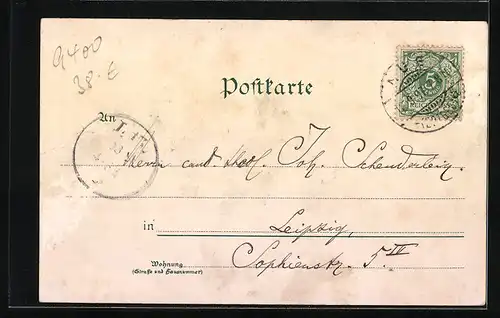 9400
38.€
Postkarte
5
An
Herrn cand. theol. Joh. Schenderlein
in Leipzig,
Wohnung
(Straße und Hausnummer)
Sophienstr. 5 IV